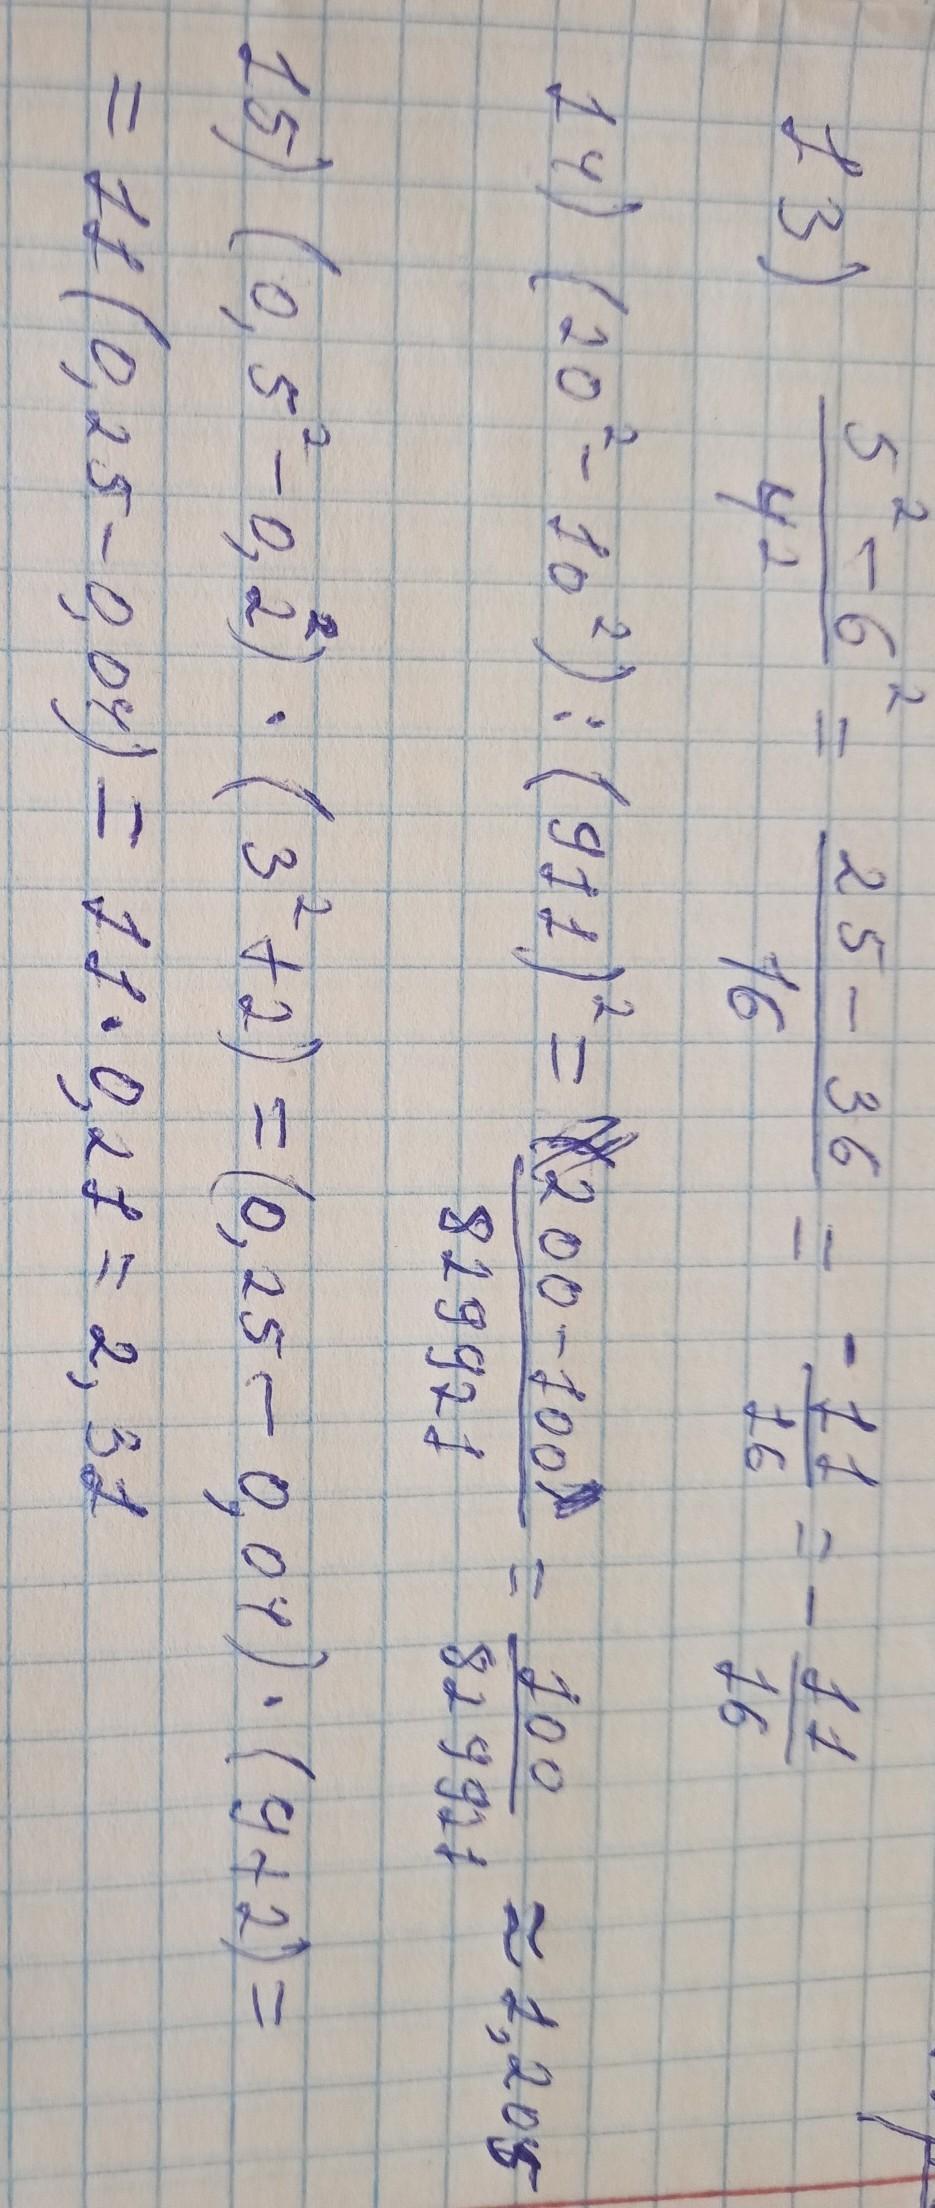 13) 5² - 6² / 42 = 25 - 36 / 16 = -11 / 16 = - 11 / 16
14) (20² - 10²) : (911)² = 200 - 100 / 829921 = 100 / 829921 ≈ 1,205
15) (0,5² - 0,2²) · (3² + 2) = (0,25 - 0,04) · (9 + 2) =
= 11 (0,25 - 0,04) = 11 · 0,21 = 2,31